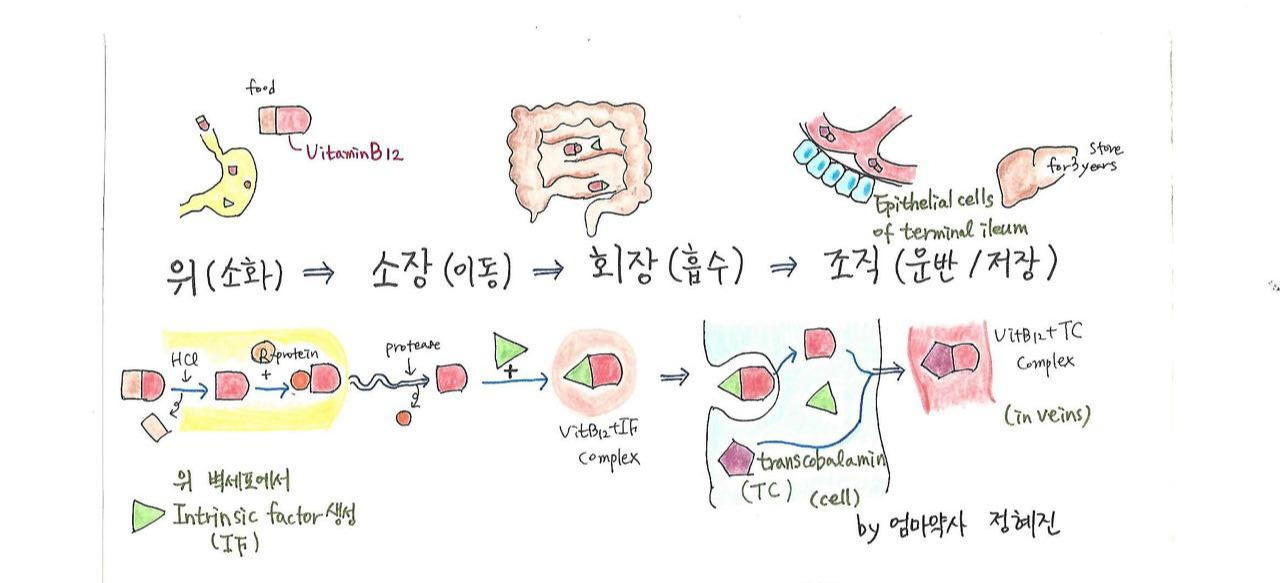 food
VitaminB12
store
for 3 years
Epithelial cells
of terminal ileum
위 (소화) ⇒ 소장 (이동) ⇒ 회장 (흡수) ⇒ 조직 (운반 / 저장)
HCl
R-protein
+
protease
+
VitB12+IF
complex
transcobalamin
(TC)
(cell)
VitB12+TC
complex
(in veins)
위 벽세포에서
Intrinsic factor 생성
(IF)
by 엄마약사 정혜진